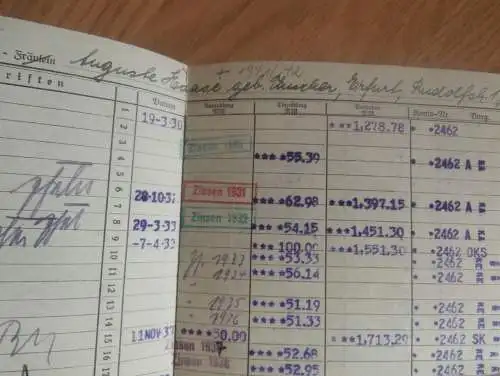 - Fräulein Auguste Haase geb. Zunker, Erfurt, Rudolfstr. 1
riften
Datum Auszahlung RM. Einzahlung RM. Guthaben RM. Konto-Nr.
1 19-3-30 ***1,278.78 * *2462
2 Zinsen 1930
3 ****55.39 * *2462 A
5 Zinsen 1931
6 28-10-32 ****62.98 ***1,397.15 * *2462 A
7 Zinsen 1932
8 29-3-33 ****54.15 ***1,451.30 * *2462 A
9 -7-4-33 ***100.00 ***1,551.30 * *2462 OKS
1933 ****53.33 * *2462
1934 ****56.14 * *2462
" 1935 ****51.19 * *2462
" 1936 ****51.33 * *2462
11 NOV 37 ****50.00 ***1,713.29 * *2462 SK
Zinsen 1937 ****52.68 * *2462
Zinsen 1938 ****52.95 * *2462